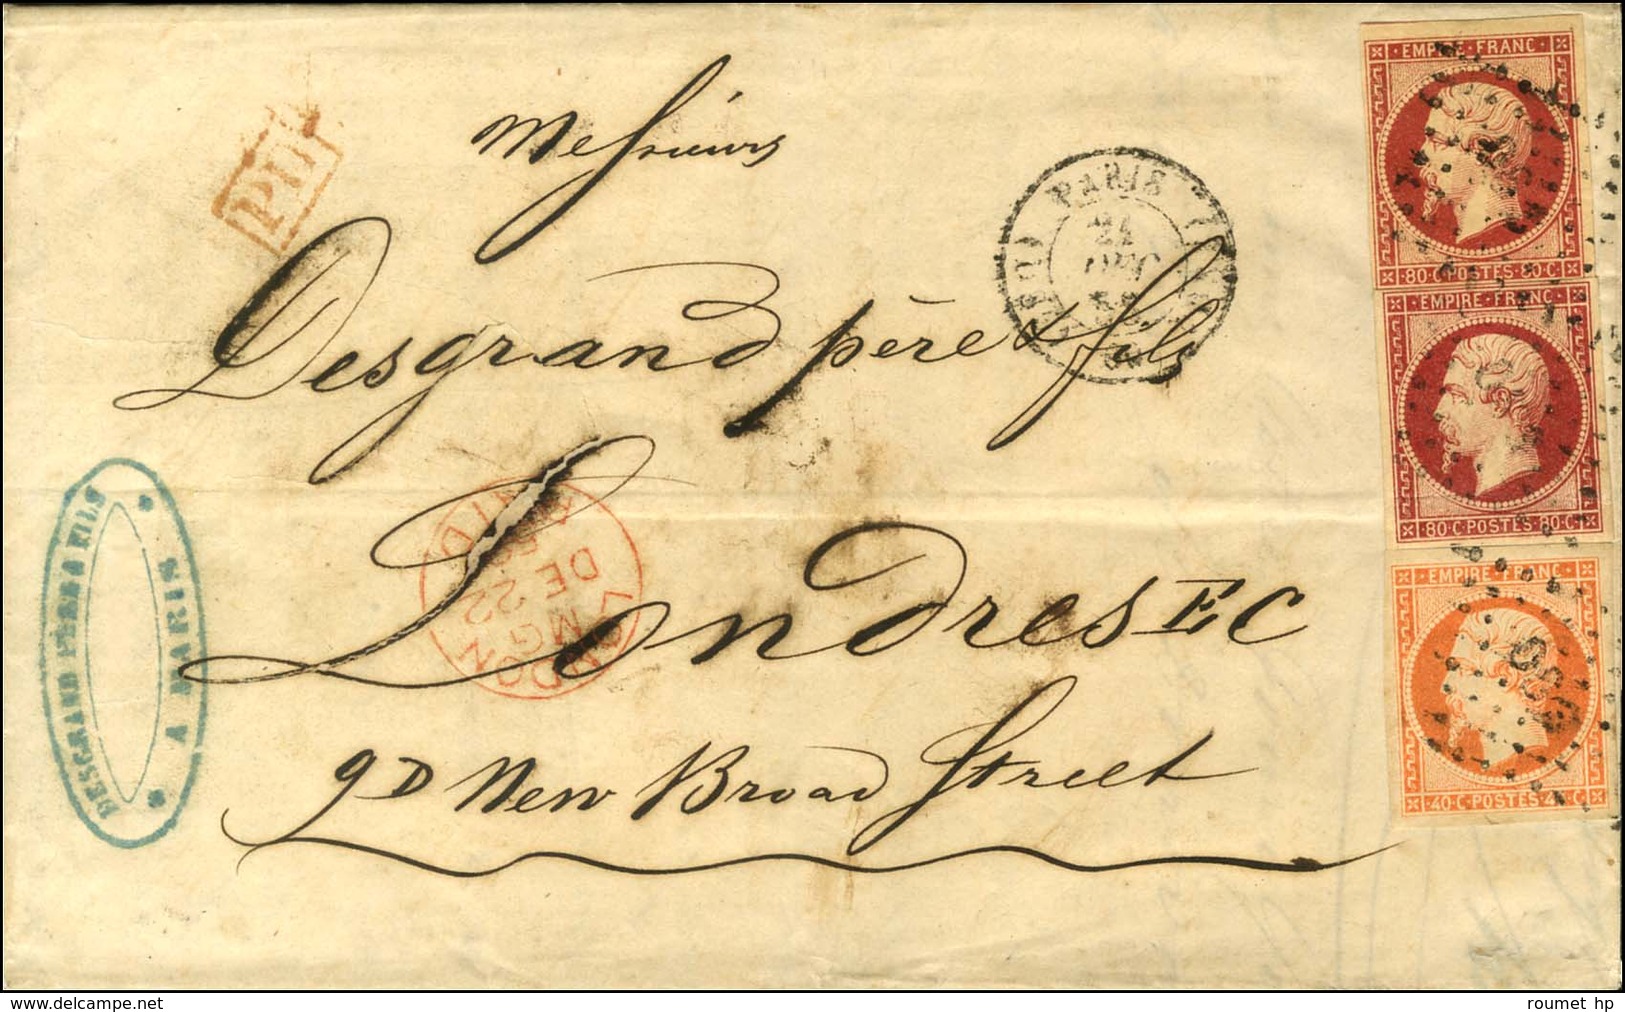 EMPIRE · FRANC ·
80 · C · POSTES · 80 · C ·
EMPIRE · FRANC ·
80 · C · POSTES · 80 · C ·
EMPIRE · FRANC ·
40 · C · POSTES · 40 · C
PD
PARIS
21
DEC
Messieurs
Desgrand père & fils
Londres EC
9D New Broad Street
LONDON
MG
DE 22
PAID
DESGRAND PERE & FILS
* A PARIS *
© delcampe.net
roumet hp